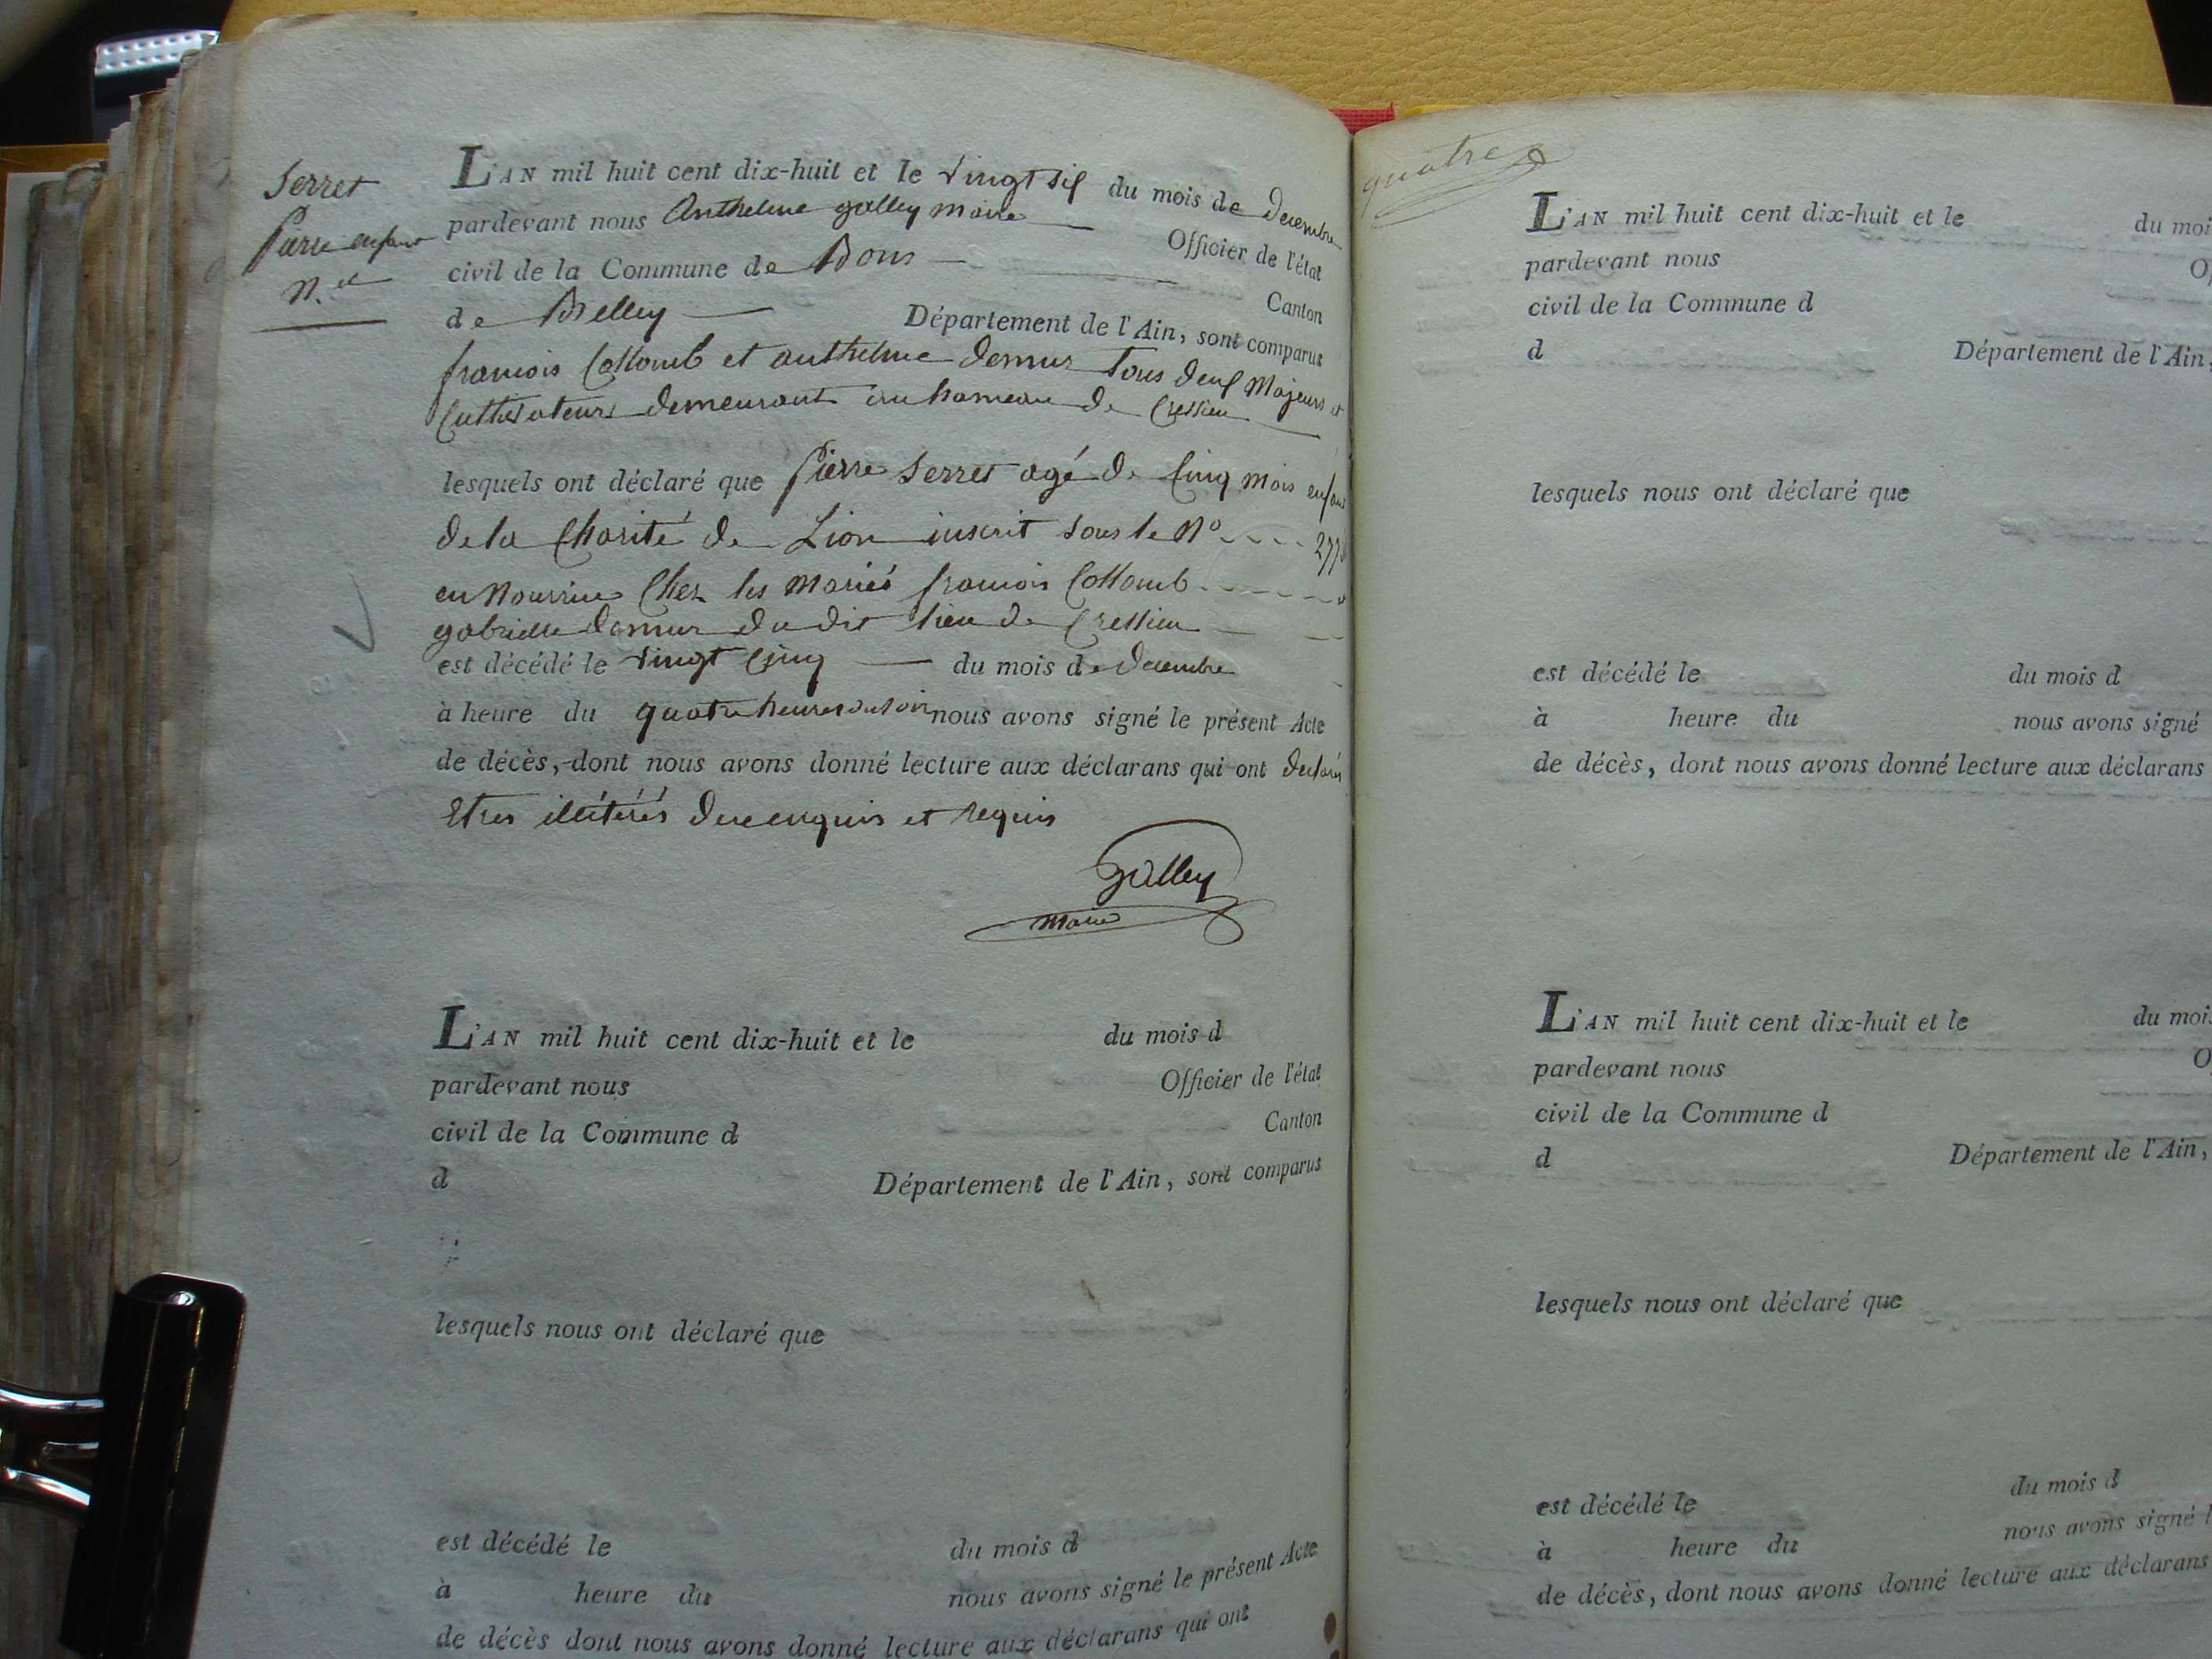 Serret
Pierre enfant
N.el
L'AN mil huit cent dix-huit et le vingt six du mois de Decembre
pardevant nous Anthelme galley maire Officier de l'état
civil de la Commune de Bons Canton
de Belley Département de l'Ain, sont comparus
françois Collomb et anthelme demur Tous deux Majeurs et
Cultivateurs demeurant au hameau de Cressieu
lesquels ont déclaré que Pierre Serret agé de Cinq mois enfant
de la Charité de Lion inscrit sous le N°
en Nourrice Chez les Mariés françois Collomb
gabrielle demur du dit lieu de Cressieu
est décédé le vingt Cinq du mois de decembre
à heure du quatre heures du soir nous avons signé le présent Acte
de décès, dont nous avons donné lecture aux déclarans qui ont
Etres illitérés de ce enquis et requis
galley
maire
L'AN mil huit cent dix-huit et le du mois d
pardevant nous Officier de l'état
civil de la Commune d Canton
d Département de l'Ain, sont comparus
lesquels nous ont déclaré que
est décédé le du mois d
à heure du nous avons signé le présent Acte
de décès dont nous avons donné lecture aux déclarans qui ont
quatre
L'AN mil huit cent dix-huit et le du moi
pardevant nous O
civil de la Commune d
d Département de l'Ain,
lesquels nous ont déclaré que
est décédé le du mois d
à heure du nous avons signé
de décès, dont nous avons donné lecture aux déclarans
L'AN mil huit cent dix-huit et le du mois
pardevant nous O
civil de la Commune d
d Département de l'Ain,
lesquels nous ont déclaré que
est décédé le du mois d
à heure du nous avons signé l
de décès, dont nous avons donné lecture aux déclarans